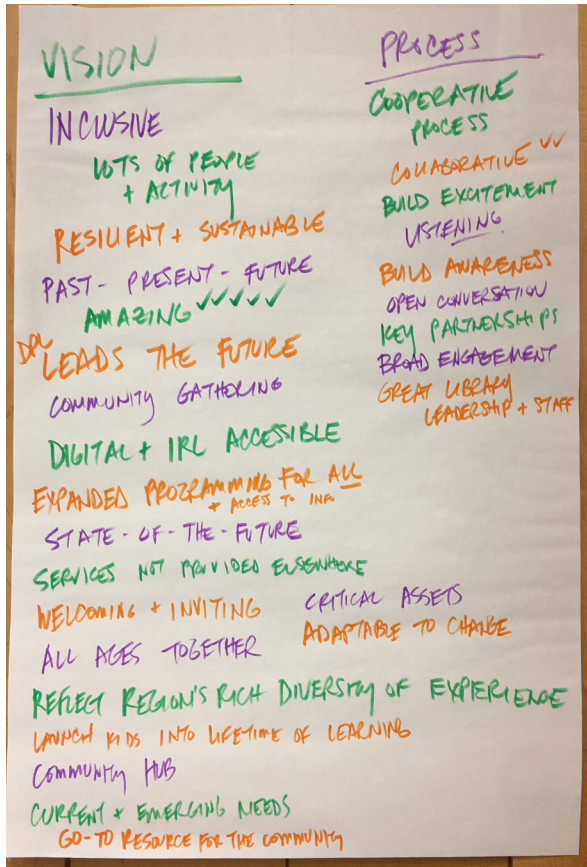 VISION
INCLUSIVE
LOTS OF PEOPLE
+ ACTIVITY
RESILIENT + SUSTAINABLE
PAST - PRESENT - FUTURE
AMAZING ✓✓✓✓✓
DPL LEADS THE FUTURE
COMMUNITY GATHERING
DIGITAL + IRL ACCESSIBLE
EXPANDED PROGRAMMING FOR ALL
+ ACCESS TO INFO
STATE-OF-THE-FUTURE
SERVICES NOT PROVIDED ELSEWHERE
WELCOMING + INVITING
CRITICAL ASSETS
ADAPTABLE TO CHANGE
ALL AGES TOGETHER
REFLECT REGION'S RICH DIVERSITY OF EXPERIENCE
LAUNCH KIDS INTO LIFETIME OF LEARNING
COMMUNITY HUB
CURRENT + EMERGING NEEDS
GO-TO RESOURCE FOR THE COMMUNITY
PROCESS
COOPERATIVE
PROCESS
COLLABORATIVE ✓✓
BUILD EXCITEMENT
LISTENING
BUILD AWARENESS
OPEN CONVERSATION
KEY PARTNERSHIPS
BROAD ENGAGEMENT
GREAT LIBRARY
LEADERSHIP + STAFF